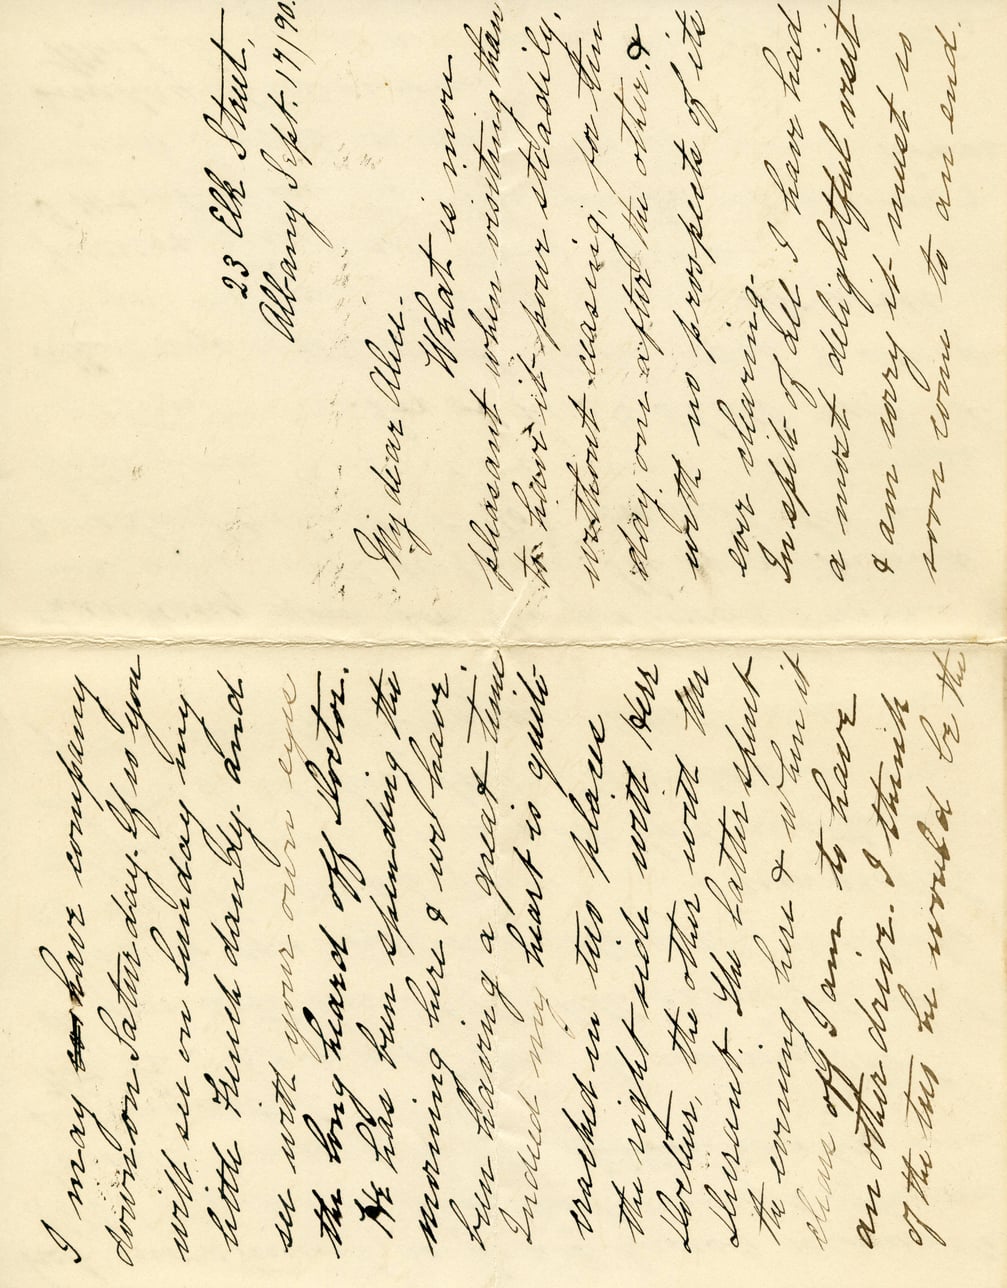 23 Elk Street,
Albany Sept. 17/90.
My dear Alice.
What is more
pleasant when visiting than
to have it pour steadily,
without ceasing, for tin
day one after the other, &
with no prospects of its
ever clearing.
In spite of all I have had
a most delightful visit
& am sorry it must is
soon come to an end.
I may have company
down on Saturday. If so you
will see on Sunday my
little French dandy and
see with your own eyes
the long heard off Doctor.
He has been spending the
morning here & we have
been having a great time
Indeed my heart is quite
cracked in two places
the right side with
Docteur, the other with Mr
The latter spent
the evening here & when it
clears off I am to have
an other drive. I think
of the two he would be the